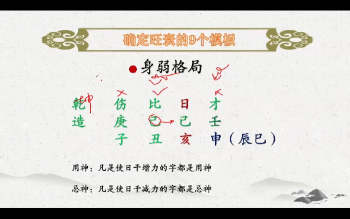 确定旺衰的9个模板
身弱格局
乾 坤 伤 比 日 才
造 庚 己 己 壬
子 丑 亥 申（辰巳）
用神：凡是使日干增力的字都是用神
忌神：凡是使日干减力的字都是忌神